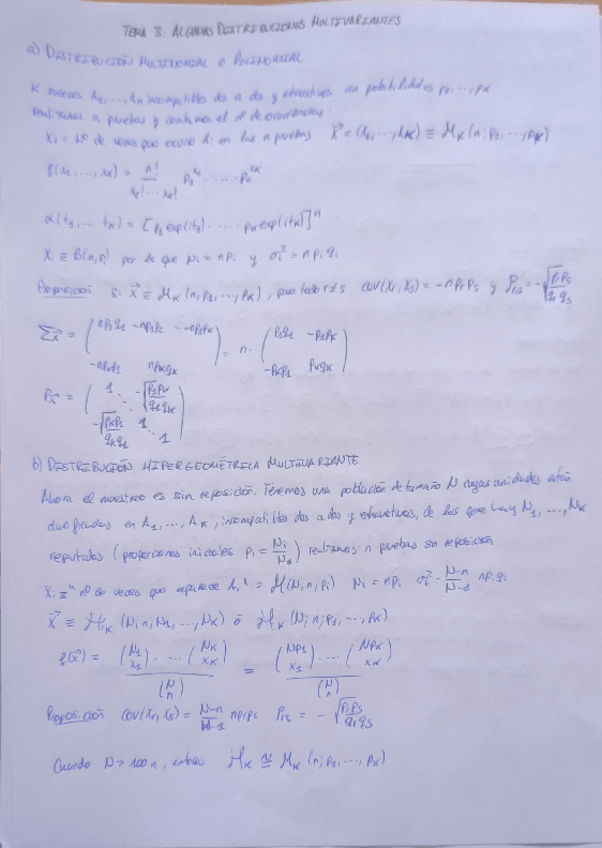 TEMA 3: ALGUNAS DISTRIBUCIONES MULTIVARIANTES
a) DISTRIBUCIÓN MULTINOMIAL O POLINOMIAL
K sucesos A1,...,An incompatibles dos a dos y exhaustivos con probabilidades p1,...,pK
Realizamos n pruebas y contamos el nº de ocurrencias
Xi = Nº de veces que ocurre Ai en las n pruebas X⃗ = (X1,...,XK) ≡ MK(n; p1,...,pK)
f(x1,...,xK) = n! / (x1!...xK!) p1^x1 ..... pK^xK
α(t1,...,tK) = [p1 exp(it1) ..... pK exp(itK)]^n
Xi ≡ B(n,pi) por lo que μi = npi y σi² = n pi qi
Proposición Si X⃗ ≡ MK(n, p1,...,pK), para todo r≠s cov(Xr,Xs) = -n pr ps y ρrs = -√(pr ps / qr qs)
Σx⃗ = ( np1q1 -np1p2 ... -np1pK
-npKp1 npKqK ) = n · ( p1q1 -p1pK
-pKp1 pKqK )
Px⃗ = ( 1 ⋱ -√(p1pK / q1qK)
-√(pKp1 / qKq1) 1 ⋱ 1 )
b) DISTRIBUCIÓN HIPERGEOMÉTRICA MULTIVARIANTE
Ahora el muestreo es sin reposición. Tenemos una población de tamaño N cuyas unidades están
clasificadas en A1,...,AK, incompatibles dos a dos y exhaustivos, de los que hay N1,...,NK
repetidas (proporciones iniciales pi = Ni/N) realizamos n pruebas sin reposición
Xi ≡ "nº de veces que aparece Ai" = H(N,n,pi) μi = npi σi² = (N-n)/(N-1) npi qi
X⃗ ≡ HK(N; n, N1,...,NK) ó HK(N; n; p1,...,pK)
f(x⃗) = (N1 x1) ... (NK xK) / (N n) = (Np1 x1) ... (NpK xK) / (N n)
Proposición cov(Xr,Xs) = (N-n)/(N-1) npr ps ρrs = -√(pr ps / qr qs)
Cuando N > 100n, entonces HK ≅ MK(n; p1,...,pK)